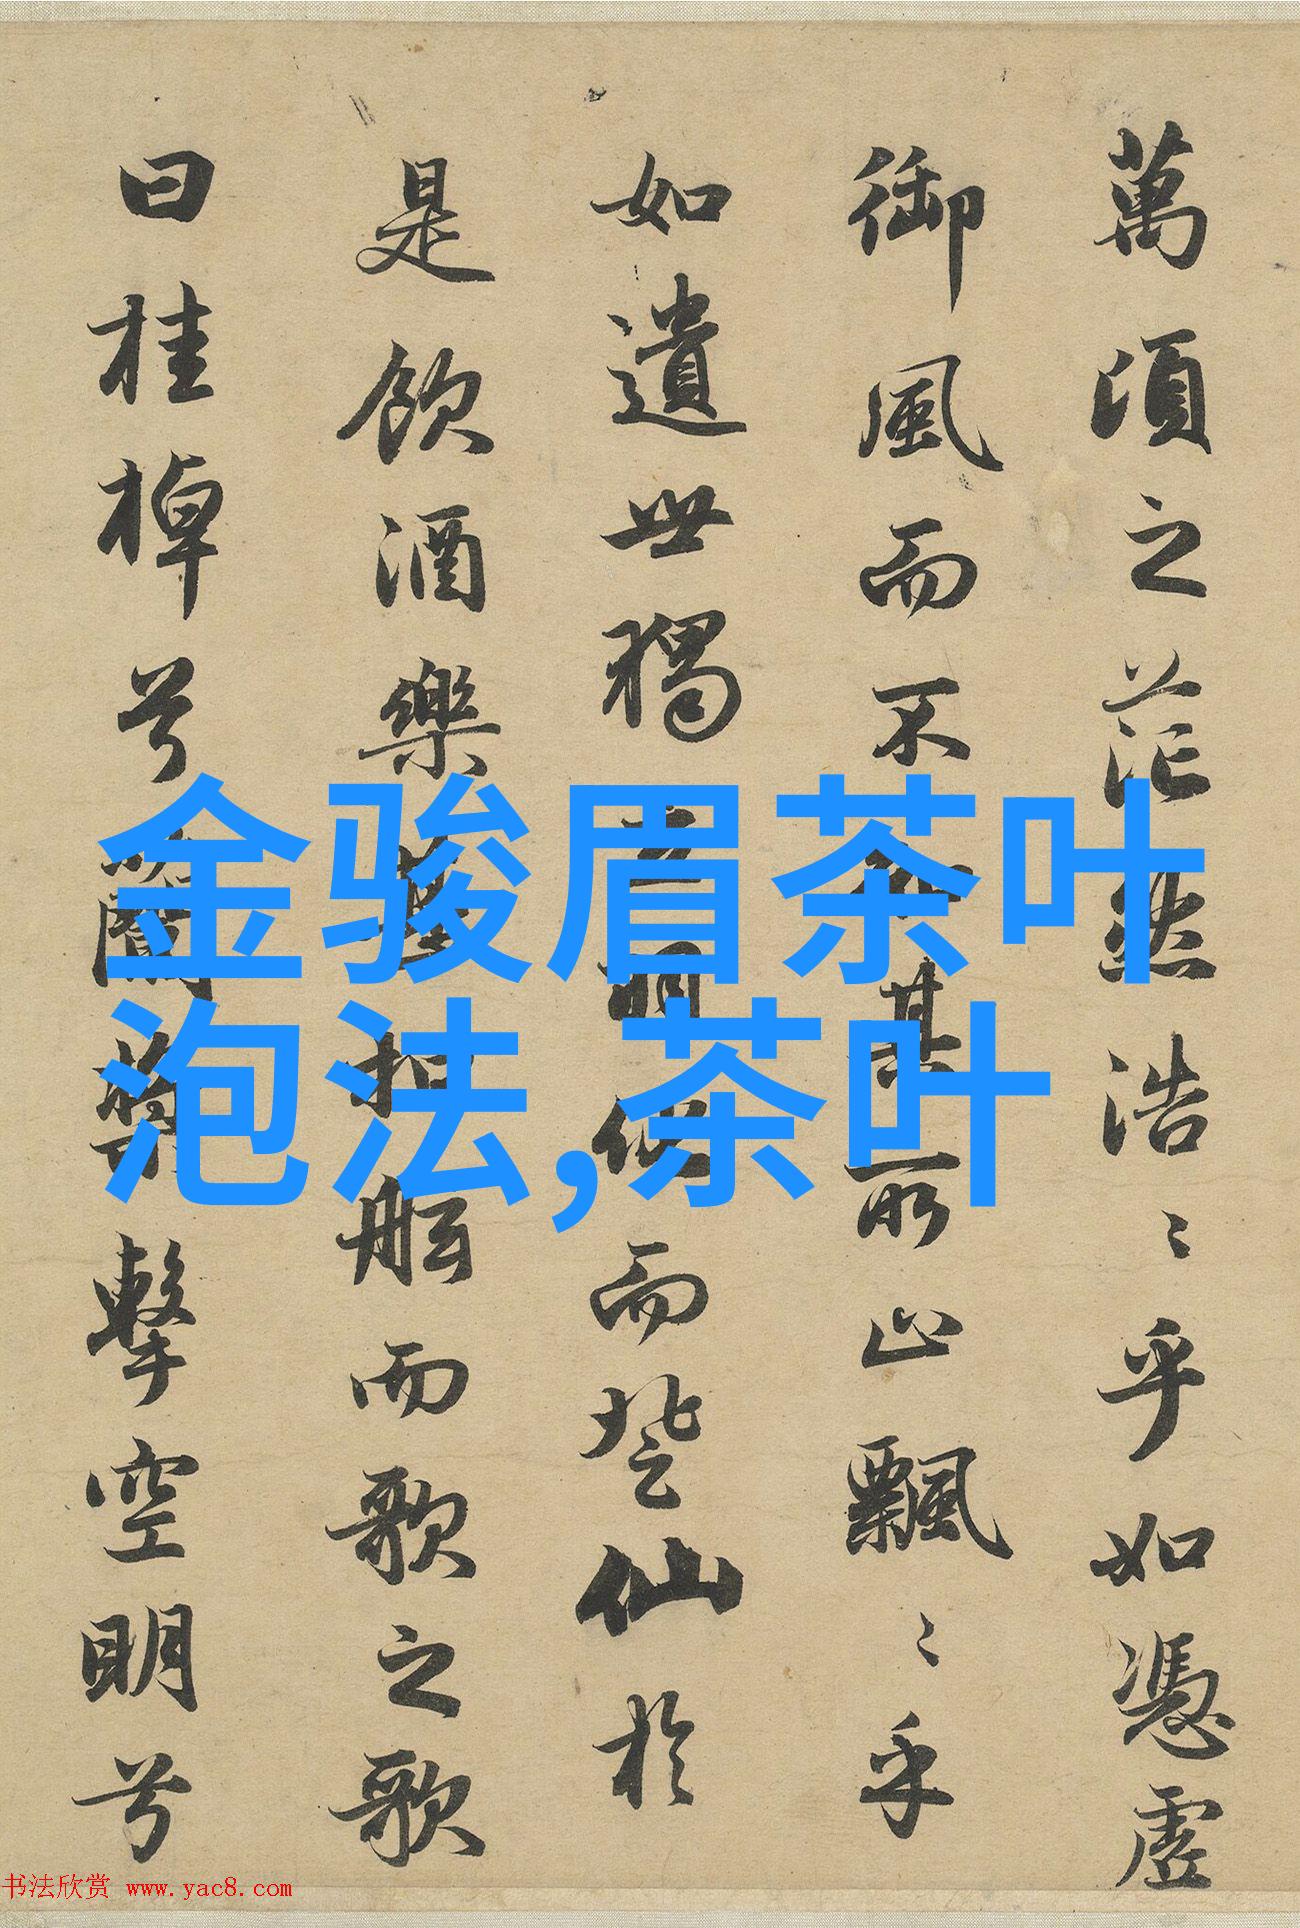 萬頃之茫然浩〻乎如憑虛
御風而不知其所止飄〻乎
如遺世獨立羽化而登仙於
是飲酒樂甚扣舷而歌之歌
曰桂棹兮蘭槳擊空明兮
金骏眉茶叶
泡法,茶叶
书法欣赏 www.yac8.com